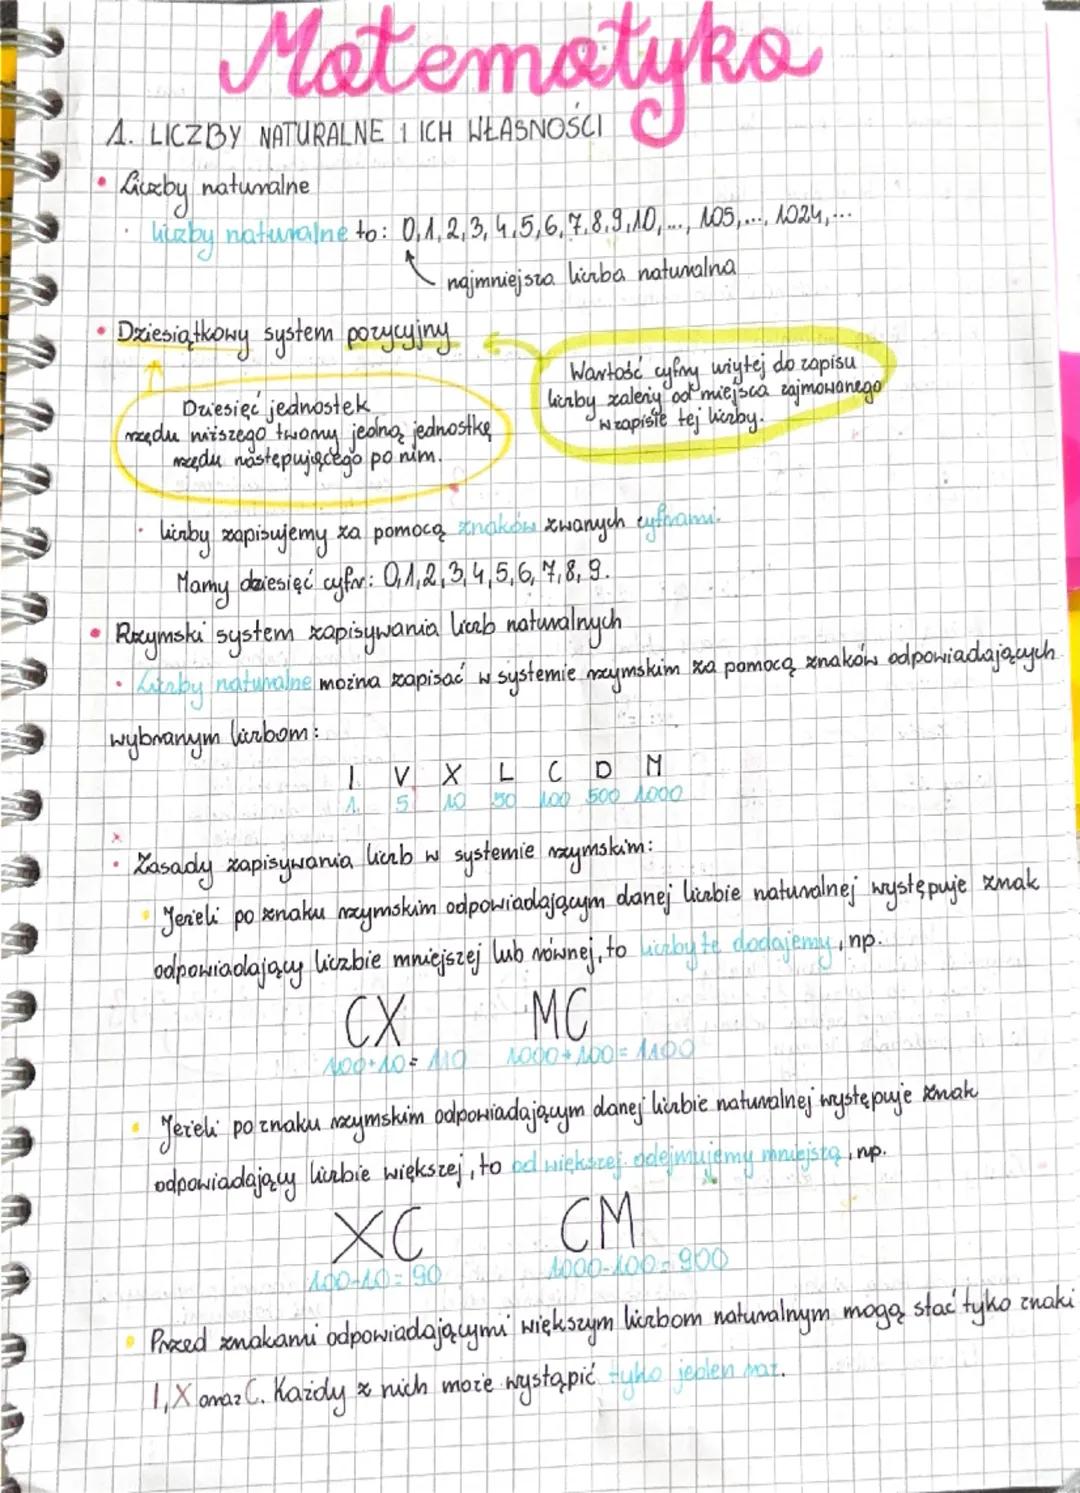 Matematyka
1. LICZBY NATURALNE I ICH WŁASNOŚCI
• Liczby naturalne
· liczby naturalne to: 0,1,2,3,4,5,6,7,8,9,10,..., 105,..., 1024,...
najmniejsza liczba naturalna
• Dziesiątkowy system pozycyjny
Wartość cyfry użytej do zapisu
liczby zależy od miejsca zajmowanego
w zapisie tej liczby.
Dziesięć jednostek
rzędu niższego tworzy jedną jednostkę
rzędu następującego po nim.
· liczby zapisujemy za pomocą znaków zwanych cyframi.
Mamy dziesięć cyfr: 0,1,2,3,4,5,6,7,8,9.
• Rzymski system zapisywania liczb naturalnych
· Liczby naturalne można zapisać w systemie rzymskim za pomocą znaków odpowiadających
wybranym liczbom:
I V X L C D M
1 5 10 50 100 500 1000
· Zasady zapisywania liczb w systemie rzymskim:
• Jeżeli po znaku rzymskim odpowiadającym danej liczbie naturalnej występuje znak
odpowiadający liczbie mniejszej lub równej, to liczby te dodajemy, np.
CX MC
100+10=110 1000+100=1100
• Jeżeli po znaku rzymskim odpowiadającym danej liczbie naturalnej występuje znak
odpowiadający liczbie większej, to od większej odejmujemy mniejszą, np.
XC CM
100-10=90 1000-100=900
• Przed znakami odpowiadającymi większym liczbom naturalnym mogą stać tyko znaki
I, X oraz C. Każdy z nich może wystąpić tyko jeden raz.